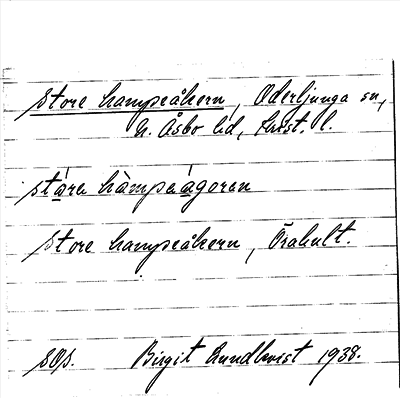 Store hampeåkern, Oderljunga sn,
N. Åsbo hd, Krist. l.
stára hàmpeágoren
Store hampeåkern, Örahult.
SOS. Birgit Lundkvist 1938.